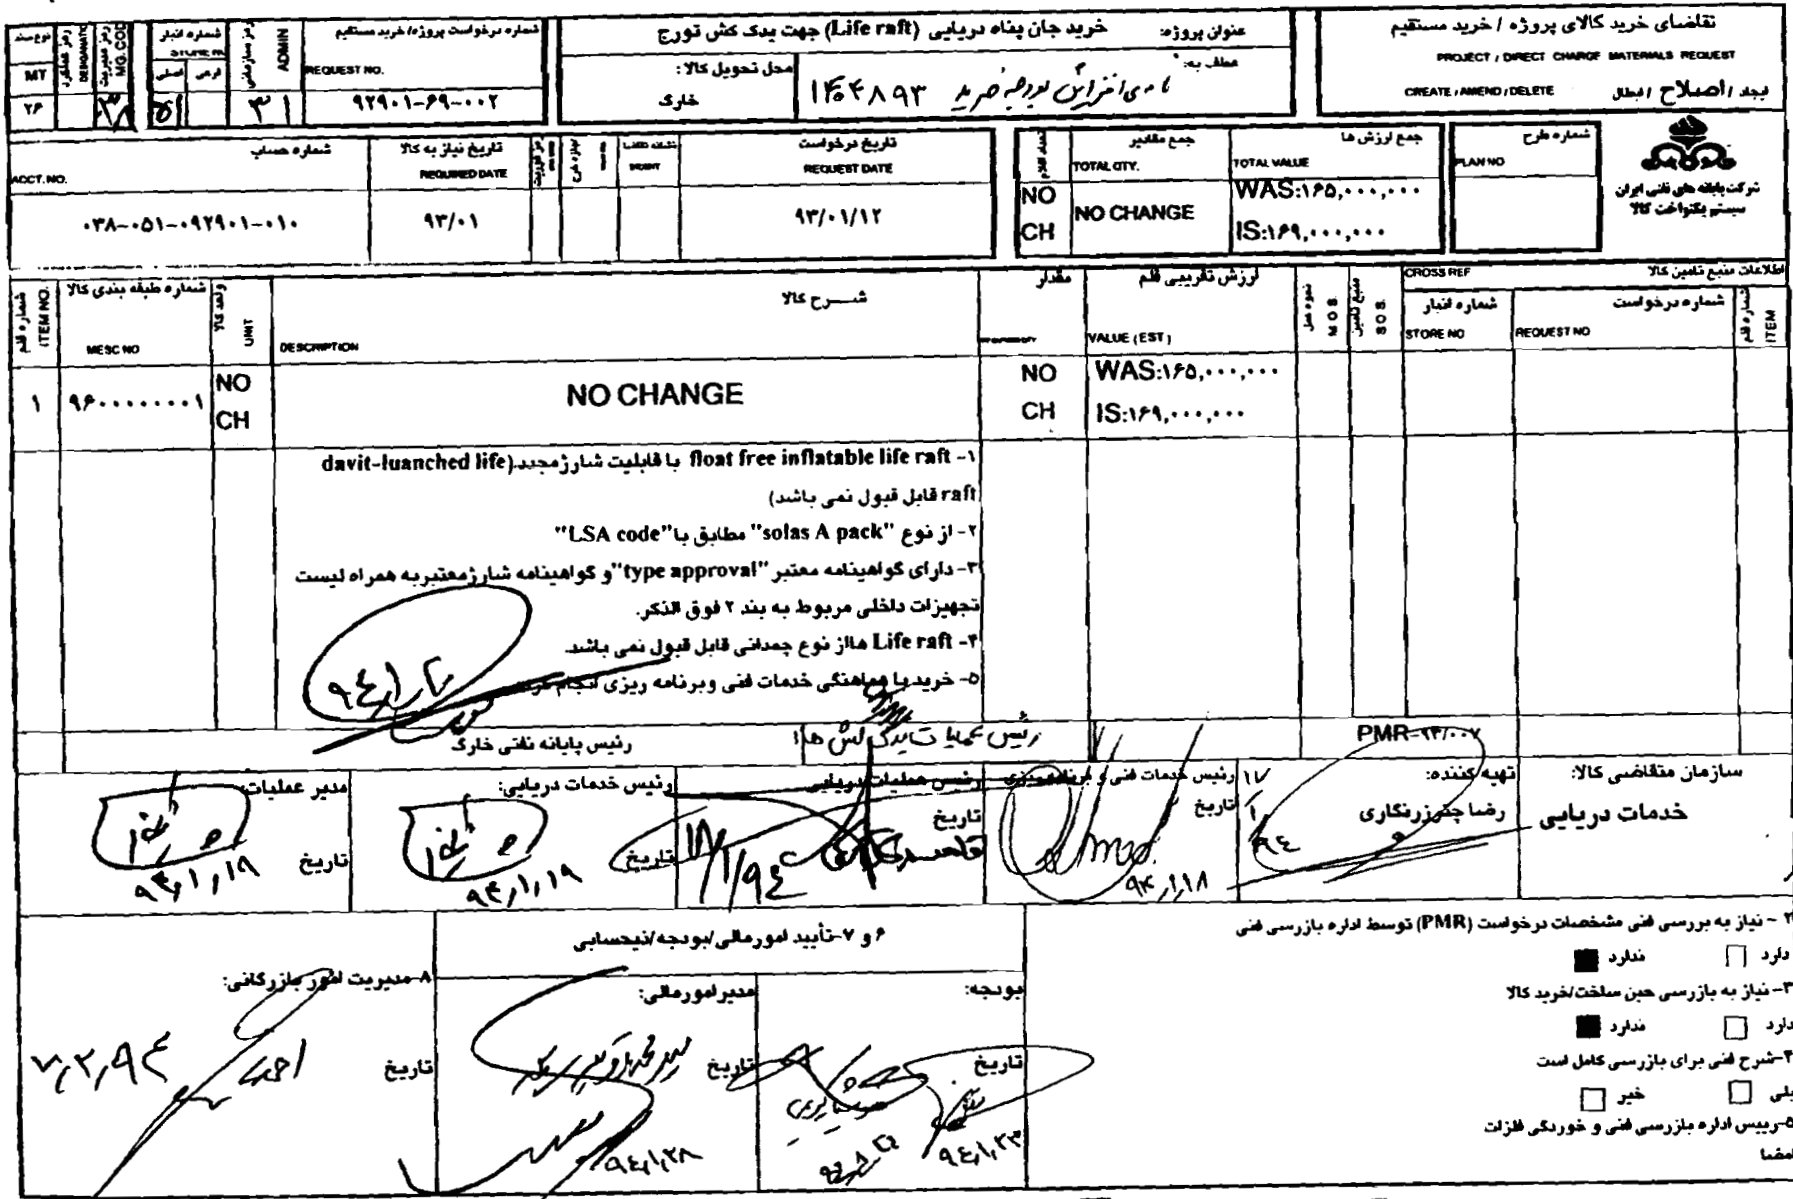 تقاضای خرید کالای پروژه / خرید مستقیم
PROJECT / DIRECT CHARGE MATERIALS REQUEST
CREATE / AMEND / DELETE
ایجاد / اصلاح / ابطال
عنوان پروژه: خرید جان پناه دریایی (Life raft) جهت یدک کش تورج
عطف به:
محل تحویل کالا:
خارک
شماره درخواست پروژه/خرید مستقیم
REQUEST NO.
۹۲۹۰۱-۶۹-۰۰۲
رمز سازمانی
ADMIN
۳۱
شماره انبار
فرعی
اصلی
۵۱
رمز مدیریت
MG. COD
۳۸
رمز عملکرد
نوع سند
MT
۲۶
شرکت پایانه های نفتی ایران
سیستم یکنواخت کالا
شماره طرح
PLAN NO
جمع ارزش ها
TOTAL VALUE
WAS:۱۶۵,۰۰۰,۰۰۰
IS:۱۶۹,۰۰۰,۰۰۰
جمع مقادیر
TOTAL QTY.
NO CHANGE
تعداد اقلام
NO
CH
تاریخ درخواست
REQUEST DATE
۹۳/۰۱/۱۲
تاریخ نیاز به کالا
REQUIRED DATE
۹۳/۰۱
شماره حساب
ACCT. NO.
۰۳۸-۰۵۱-۰۹۲۹۰۱-۰۱۰
اطلاعات منبع تامین کالا
CROSS REF
شماره قلم
ITEM
شماره درخواست
REQUEST NO
شماره انبار
STORE NO
منبع تامین
S O S.
نحوه حمل
M O S
ارزش تقریبی قلم
VALUE ( EST )
مقدار
شـــرح کالا
DESCRIPTION
واحد کالا
UNIT
شماره طبقه بندی کالا
MESC NO
شماره قلم
ITEM NO.
۱
۹۶۰۰۰۰۰۰۰۰۱
NO
CH
NO CHANGE
NO
CH
WAS:۱۶۵,۰۰۰,۰۰۰
IS:۱۶۹,۰۰۰,۰۰۰
۱- float free inflatable life raft با قابلیت شارژمجدد.(davit-luanched life
raft قابل قبول نمی باشد)
۲- از نوع "solas A pack" مطابق با "LSA code"
۳- دارای گواهینامه معتبر "type approval" و گواهینامه شارژمعتبربه همراه لیست
تجهیزات داخلی مربوط به بند ۲ فوق الذکر.
۴- Life raft هااز نوع چمدانی قابل قبول نمی باشد.
۵- خرید با هماهنگی خدمات فنی وبرنامه ریزی انجام
رئیس پایانه نفتی خارک
PMR-۹۳/۰۰۷
سازمان متقاضی کالا:
خدمات دریایی
تهیه کننده:
رضا چترزرنگاری
رئیس خدمات فنی و برنامه ریزی
تاریخ
۹۴/۱/۱۸
رئیس عملیات دریایی
تاریخ
۱۸/۱/۹۴
رئیس خدمات دریایی:
تاریخ
۹۴/۱/۱۹
مدیر عملیات:
تاریخ
۹۴/۱/۱۹
۲ - نیاز به بررسی فنی مشخصات درخواست (PMR) توسط اداره بازرسی فنی
دارد
ندارد
۳- نیاز به بازرسی حین ساخت/خرید کالا
دارد
ندارد
۴-شرح فنی برای بازرسی کامل است
بلی
خیر
۵-رییس اداره بازرسی فنی و خوردگی فلزات
امضا
۶ و ۷-تأیید امورمالی/بودجه/ذیحسابی
بودجه:
تاریخ
۹۴/۱/۲۳
مدیرامورمالی:
تاریخ
۹۴/۱/۲۸
۸-مدیریت امور بازرگانی:
تاریخ
۷/۲/۹۴